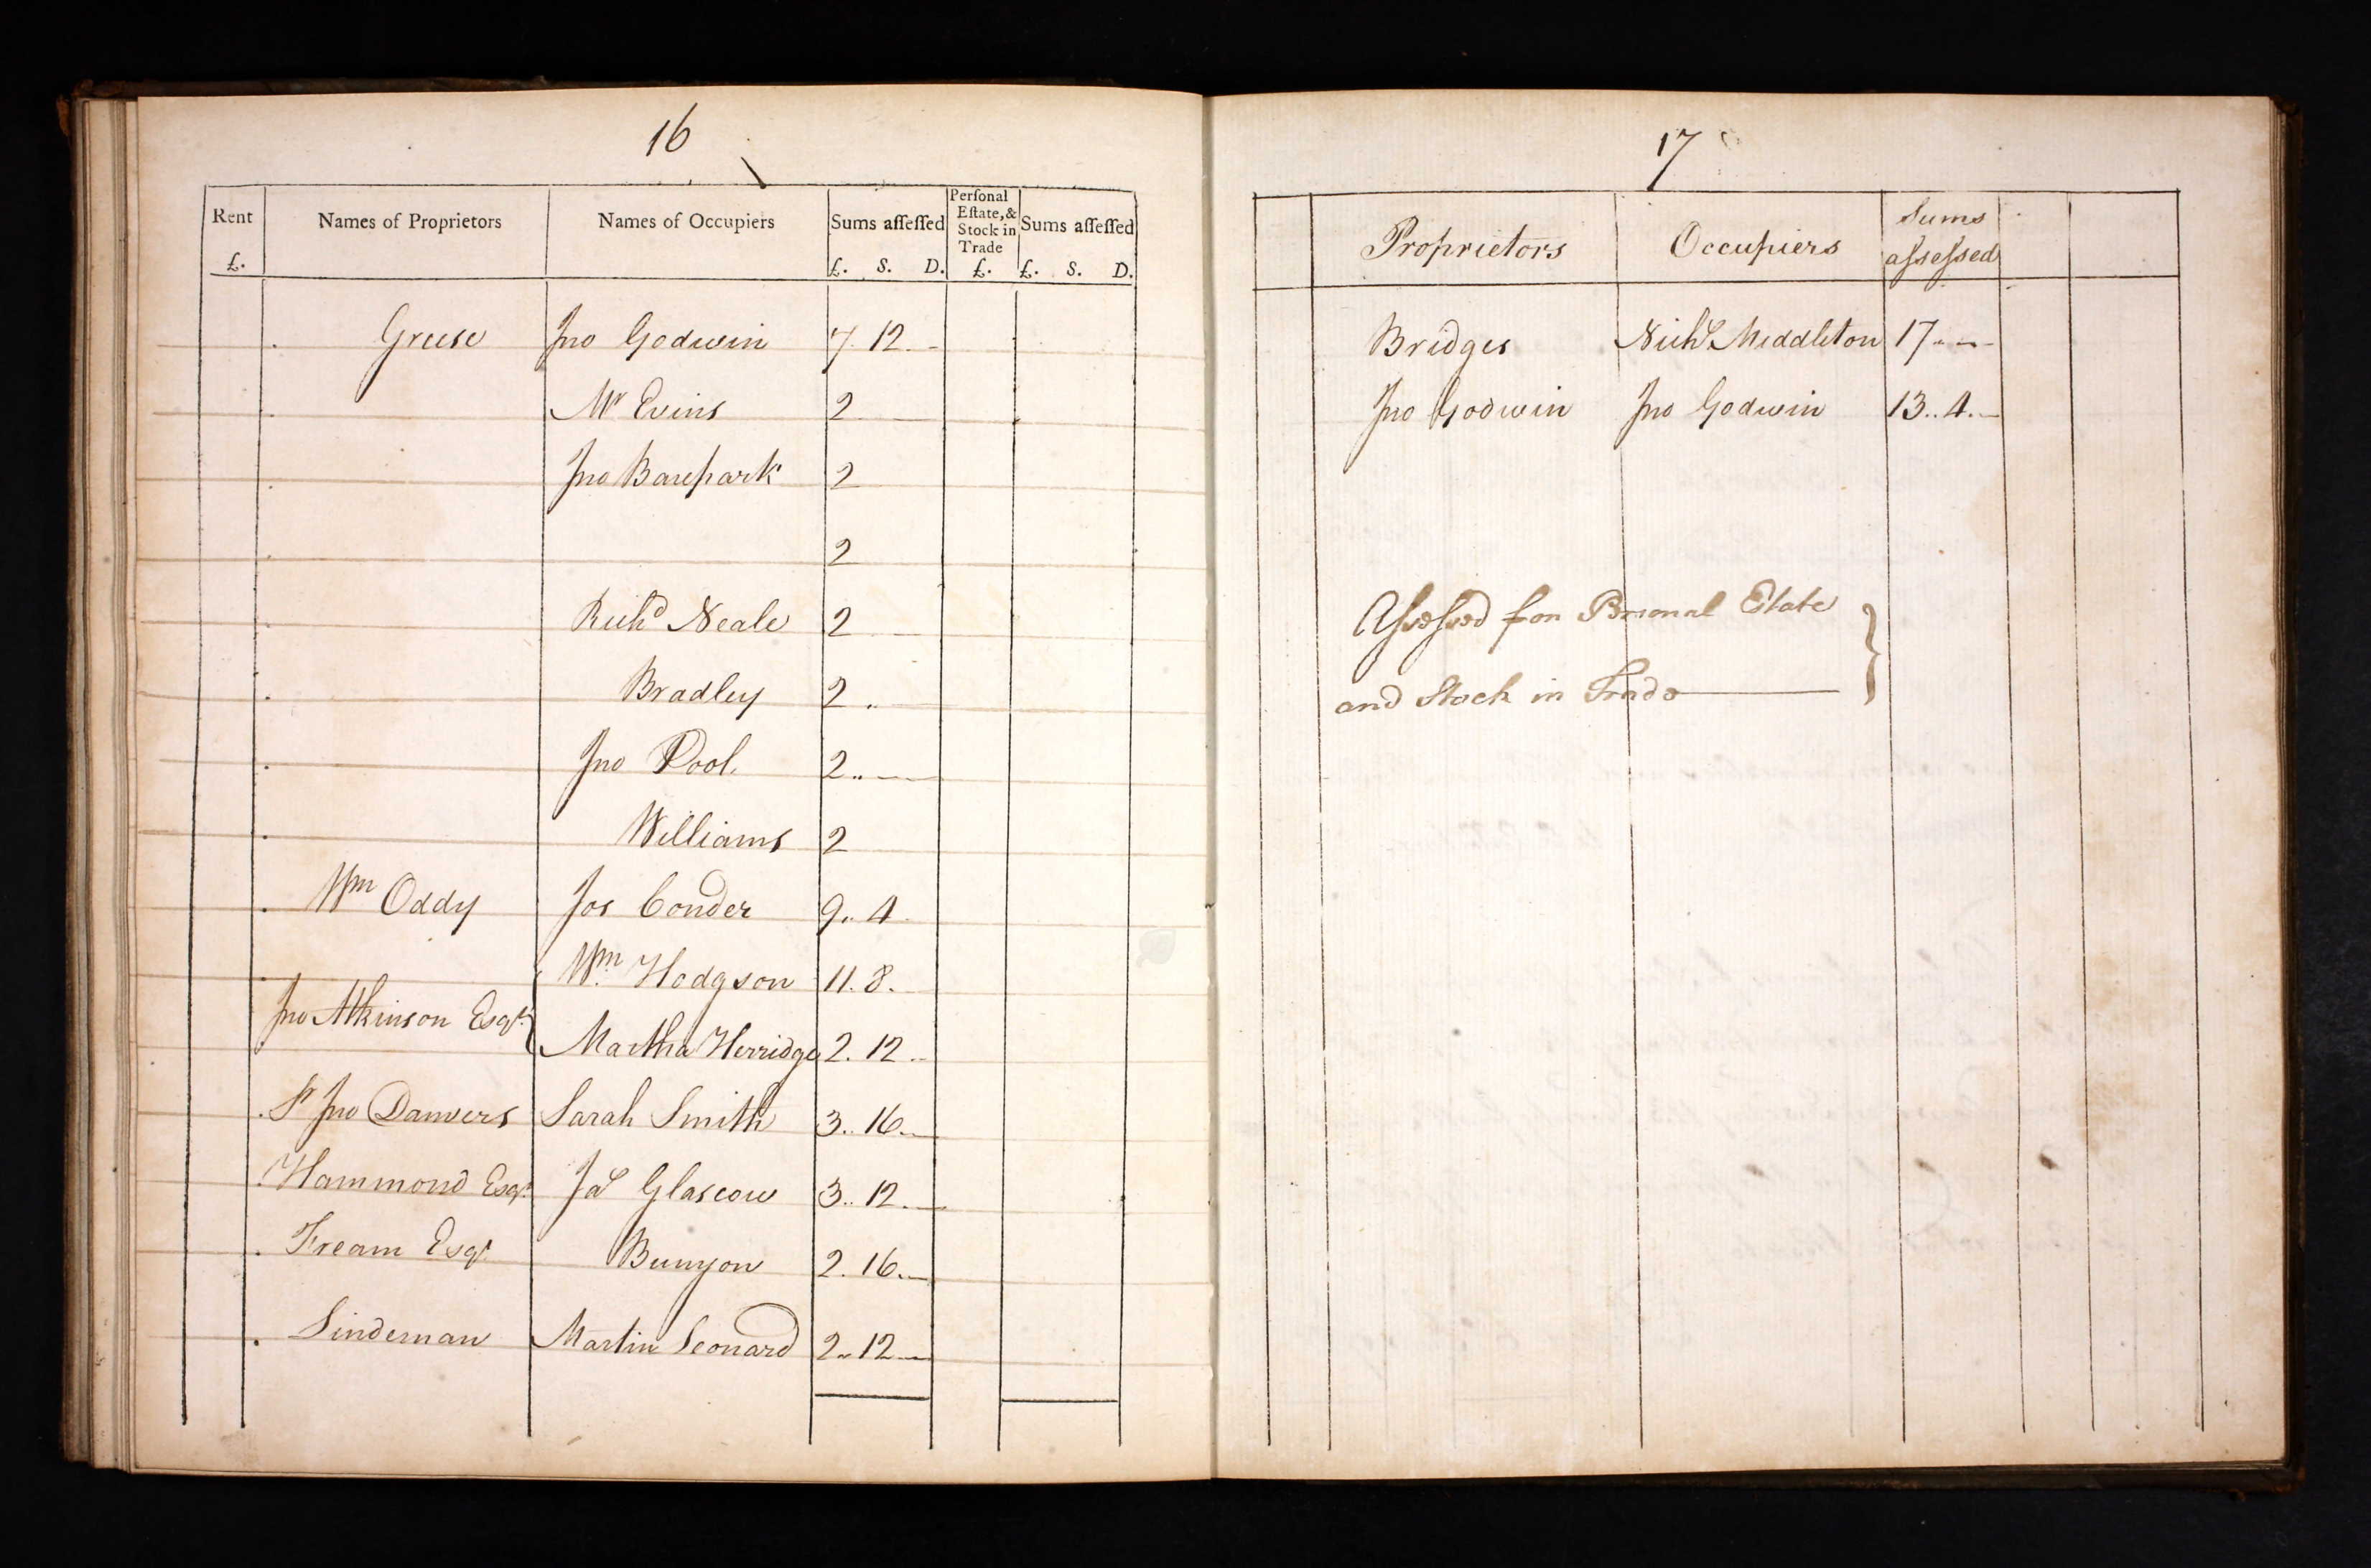 16
Rent £.
Names of Proprietors
Names of Occupiers
Sums aſſeſſed £. S. D.
Perſonal Eſtate, & Stock in Trade £.
Sums aſſeſſed £. S. D.
Greese Jno Godwin 7. 12. -
Mr Evins 2 -
Jno Barepark 2
2
Richd Neale 2 -
Bradley 2 -
Jno Pool. 2.. -
Williams 2
Wm Oddy Jos Conder 9.. 4
Wm Hodgson 11. 8.
Jno Atkinson Esqr. }
Martha Herridge 2. 12 -
Sr Jno Danvers Sarah Smith 3.. 16. -
Hammond Esqr. Jas Glascow 3.. 12. -
Fream Esqr. Bunyon 2. 16. -
Lindeman Martin Leonard 2.. 12 -
17
Proprietors
Occupiers
Sums aſseſsed
Bridges Nichs Middleton 17.. -
Jno Godwin Jno Godwin 13.. 4. -
Aſseſsed for Personal Estate }
and Stock in Trade